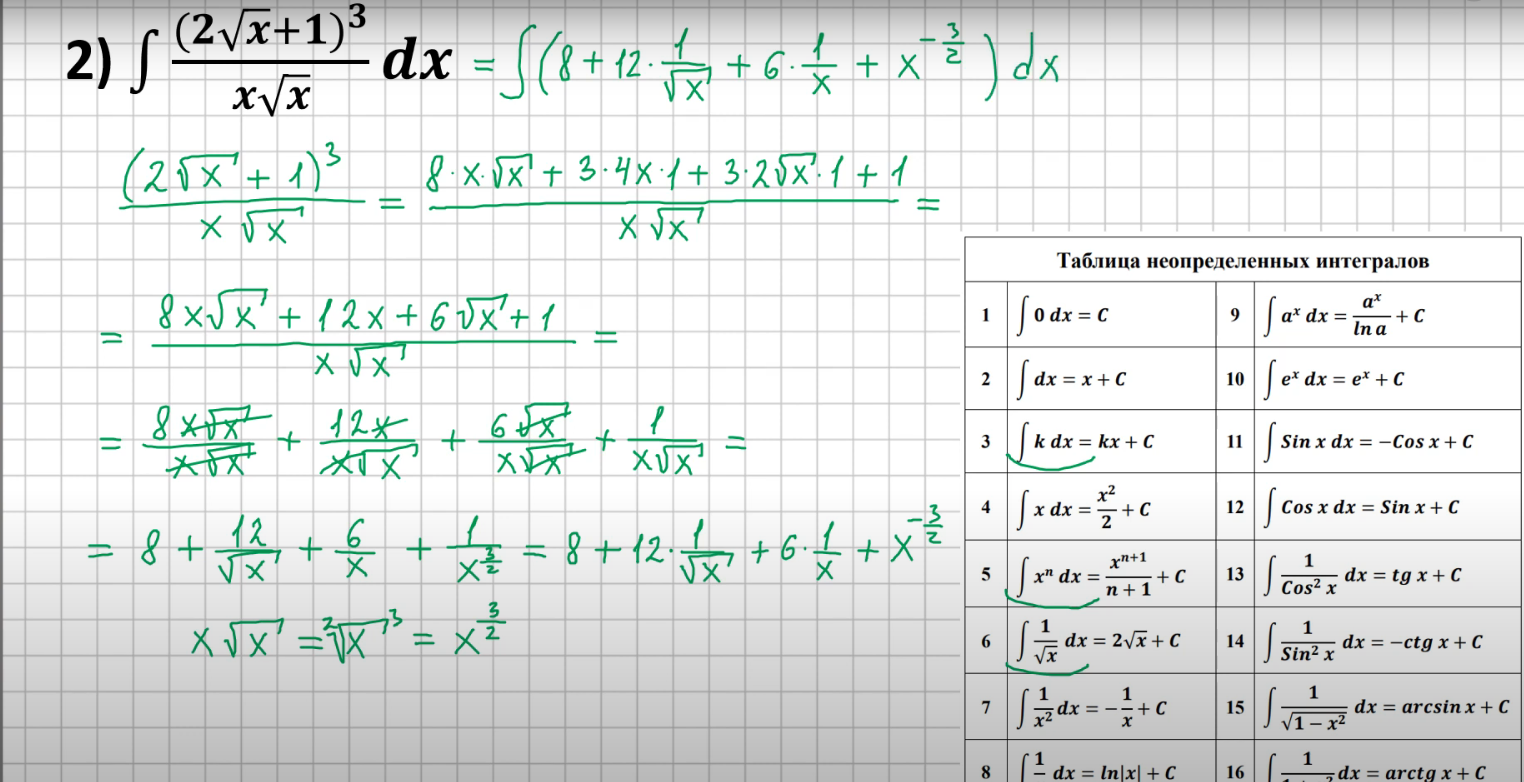 2) ∫ (2√x+1)³ / x√x dx = ∫(8 + 12 · 1/√x + 6 · 1/x + x^(-3/2)) dx
(2√x + 1)³ / x√x = (8·x·√x + 3·4x·1 + 3·2√x·1 + 1) / x√x =
= (8x√x + 12x + 6√x + 1) / x√x =
= 8x√x / x√x + 12x / x√x + 6√x / x√x + 1 / x√x =
= 8 + 12/√x + 6/x + 1/x^(3/2) = 8 + 12 · 1/√x + 6 · 1/x + x^(-3/2)
x√x = ²√x³ = x^(3/2)
Таблица неопределенных интегралов
1 ∫ 0 dx = C 9 ∫ aˣ dx = aˣ / ln a + C
2 ∫ dx = x + C 10 ∫ eˣ dx = eˣ + C
3 ∫ k dx = kx + C 11 ∫ Sin x dx = −Cos x + C
4 ∫ x dx = x²/2 + C 12 ∫ Cos x dx = Sin x + C
5 ∫ xⁿ dx = xⁿ⁺¹ / n + 1 + C 13 ∫ 1 / Cos² x dx = tg x + C
6 ∫ 1/√x dx = 2√x + C 14 ∫ 1 / Sin² x dx = −ctg x + C
7 ∫ 1/x² dx = − 1/x + C 15 ∫ 1 / √1 − x² dx = arcsin x + C
8 ∫ 1 dx = ln|x| + C 16 ∫ 1 dx = arctg x + C